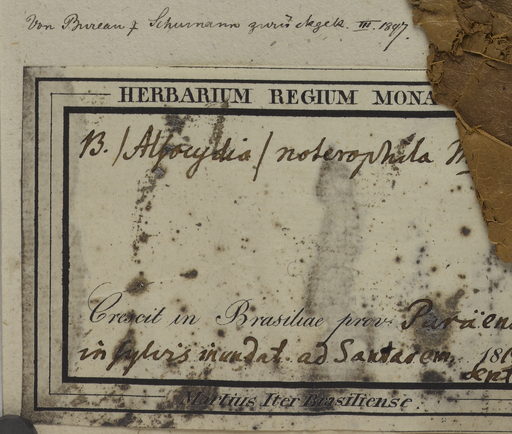 Von Bureau & Schumann zurückgek. III. 1897.
HERBARIUM REGIUM MONA
B. /Alsocydia/ noterophila M
Crescit in Brasiliae prov. Paraën
in sylvis inundat. ad Santarem, 181
Sept
Martius Iter Brasiliense.